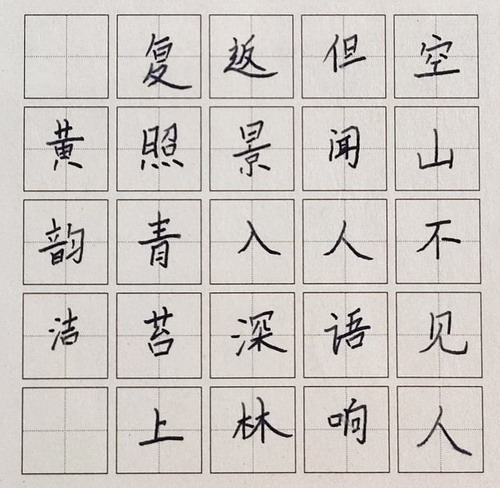 空山不见人
但闻人语响
返景入深林
复照青苔上
黄韵洁